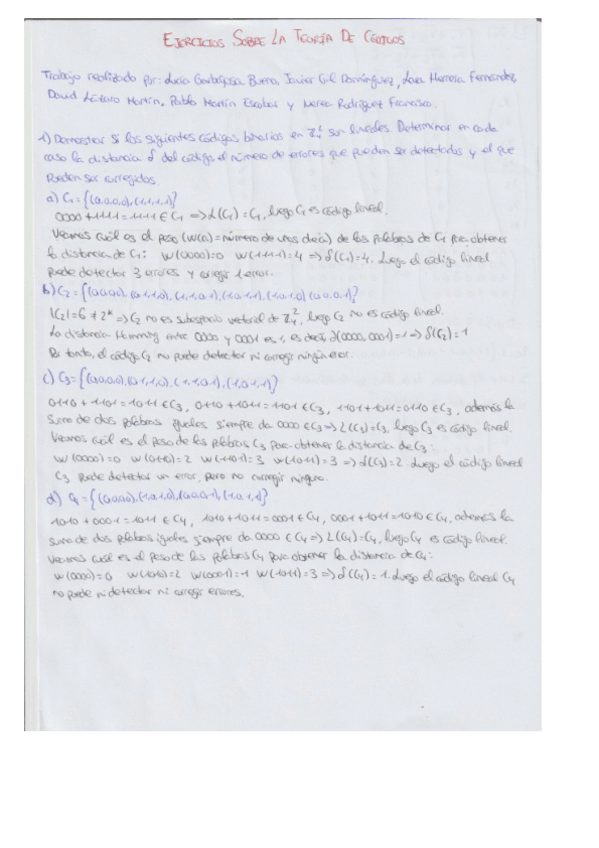 EJERCICIOS SOBRE LA TEORÍA DE CÓDIGOS
Trabajo realizado por: Lucía Garbajosa Bueno, Javier Gil Domínguez, Lara Herrera Fernández,
David Lázaro Martín, Pablo Martín Escobar y Nerea Rodríguez Francisco.
1) Demostrar si los siguientes códigos binarios en Z₂⁴ son lineales. Determinar en cada
caso la distancia δ del código, el número de errores que pueden ser detectados y el que
pueden ser corregidos.
a) C₁={(0,0,0,0),(1,1,1,1)}
0000+1111=1111 ∈ C₁ => L(C₁)=C₁, luego C₁ es código lineal.
Veamos cuál es el peso (w(a)=número de unos de a) de las palabras de C₁ para obtener
la distancia de C₁: w(0000)=0 w(1111)=4 => δ(C₁)=4. Luego el código lineal
puede detectar 3 errores y corregir 1 error.
b) C₂={(0,0,0,0),(0,1,1,0),(1,1,0,1),(1,0,1,1),(1,0,1,0),(0,0,0,1)}
|C₂|=6≠2ᵏ => C₂ no es subespacio vectorial de Z₄², luego C₂ no es código lineal.
La distancia Hamming entre 0000 y 0001 es 1, es decir, d(0000,0001)=1 => δ(C₂)=1
Por tanto, el código C₂ no puede detectar ni corregir ningún error.
c) C₃={(0,0,0,0),(0,1,1,0),(1,1,0,1),(1,0,1,1)}
0110+1101=1011 ∈ C₃, 0110+1011=1101 ∈ C₃, 1101+1011=0110 ∈ C₃, además la
suma de dos palabras iguales siempre da 0000 ∈ C₃ => L(C₃)=C₃, luego C₃ es código lineal.
Veamos cuál es el peso de las palabras C₃ para obtener la distancia de C₃:
w(0000)=0 w(0110)=2 w(1101)=3 w(1011)=3 => δ(C₃)=2. Luego el código lineal
C₃ puede detectar un error, pero no corregir ninguno.
d) C₄={(0,0,0,0),(1,0,1,0),(0,0,0,1),(1,0,1,1)}
1010+0001=1011 ∈ C₄, 1010+1011=0001 ∈ C₄, 0001+1011=1010 ∈ C₄, además la
suma de dos palabras iguales siempre da 0000 ∈ C₄ => L(C₄)=C₄, luego C₄ es código lineal.
Veamos cuál es el peso de las palabras C₄ para obtener la distancia de C₄:
w(0000)=0 w(1010)=2 w(0001)=1 w(1011)=3 => δ(C₄)=1. Luego el código lineal C₄
no puede ni detectar ni corregir errores.